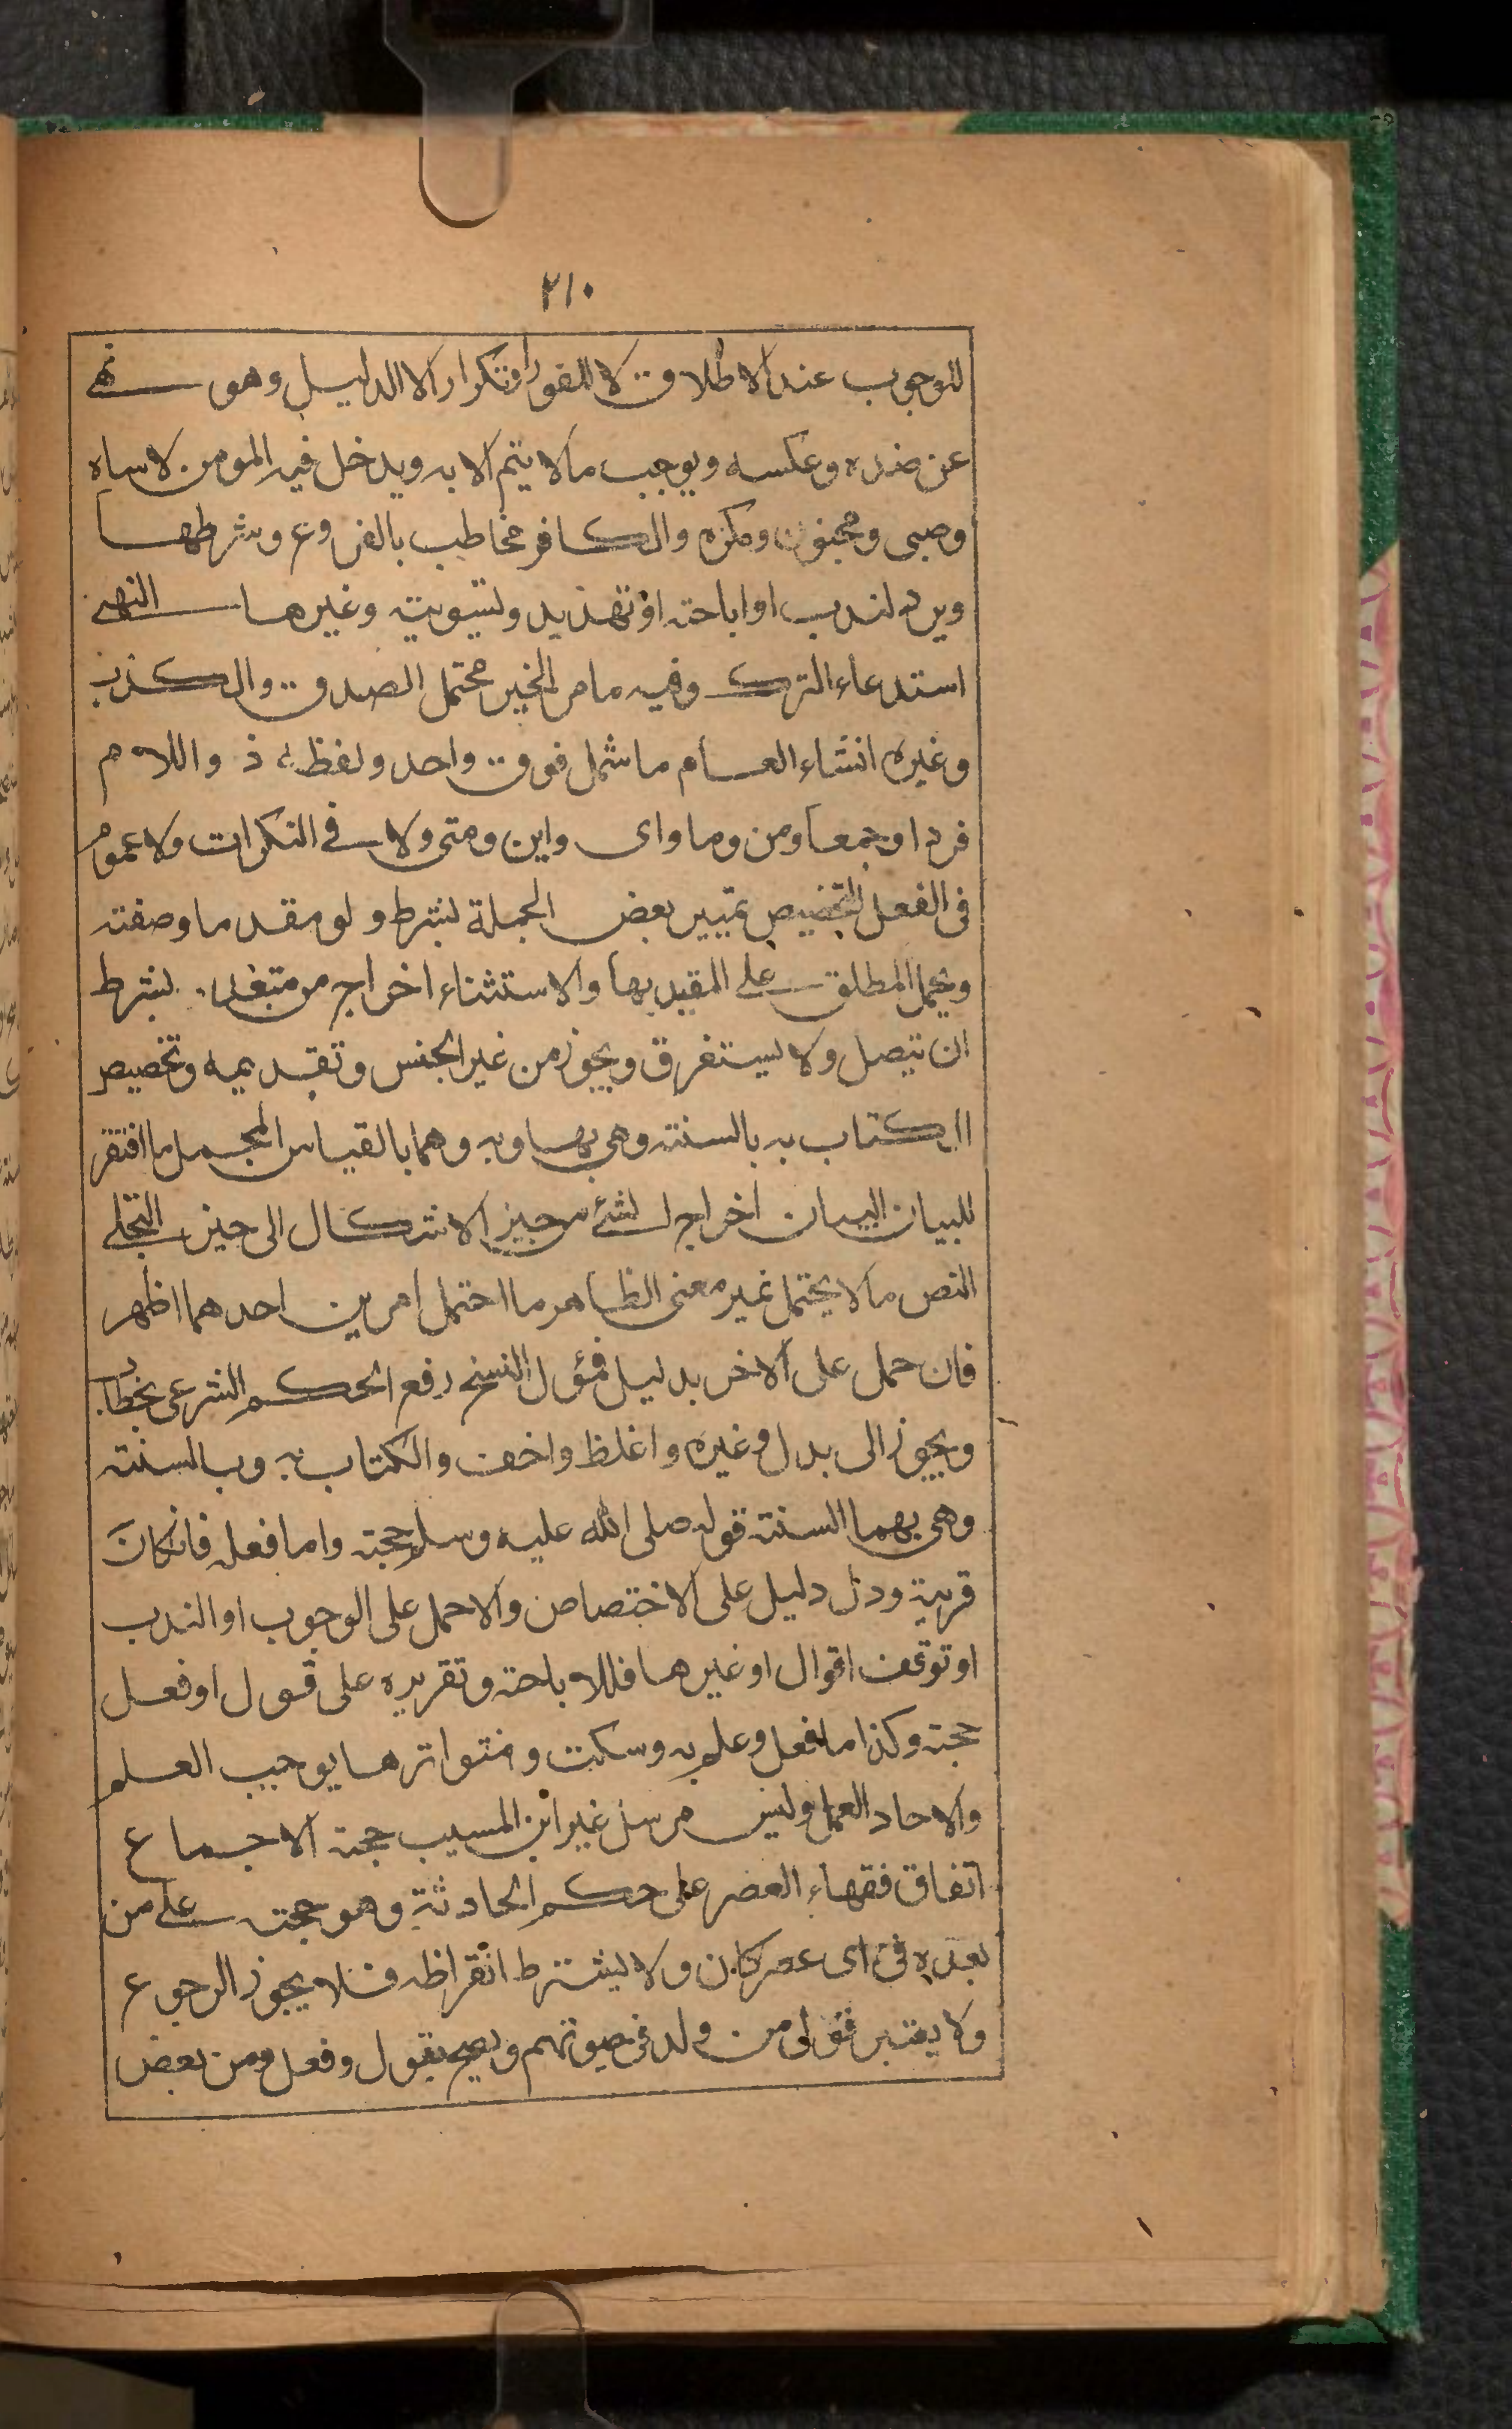 ٢١٠
للوجوب عند الاطلاق لا للفور او تكرار الا لدليل وهو نهى
عن ضده وعكسه ويوجب ما لا يتم الا به ويدخل فيه المومن لا ساه
وصبى ومجنون ومكره والكافر مخاطب بالفروع وشرطها
ويرد لندب او اباحة او تهديد وتسوية وغيرها النهى
استدعاء الترك وفيه ما مر الخبر محتمل الصدق والكذب
وغيره انشاء العام ما شمل فوق واحد ولفظه ذ واللام
فردا وجمعا ومن وما واى واين ومتى ولا فى النكرات ولا عموم
فى الفعل التخصيص تمييز بعض الجملة بشرط ولو مقدما وصفة
ويحمل المطلق على المقيد بها والاستثناء اخراج من متعدد بشرط
ان يتصل ولا يستغرق ويجوز من غير الجنس وتقديمه وتخصيص
الكتاب به بالسنة وهى بها وبه وهما بالقياس المجمل ما افتقر
للبيان البيان اخراج الشئ من حيز الاشكال الى حيز التجلى
النص ما لا يحتمل غير معنى الظاهر ما احتمل امرين احدهما اظهر
فان حمل على الاخر بدليل فمؤل النسخ رفع الحكم الشرعى بخطاب
ويجوز الى بدل وغيره واغلظ واخف والكتاب به وبالسنة
وهى بهما السنة قوله صلى الله عليه وسلم حجة واما فعله فان كان
قربة ودل دليل على الاختصاص والا حمل على الوجوب او الندب
او توقف اقوال او غيرها فللاباحة وتقريره على قول او فعل
حجة وكذا ما فعل وعلم به وسكت ومتواترها يوجب العلم
والاحاد العمل وليس مرسل غير ابن المسيب حجة الاجماع
اتفاق فقهاء العصر على حكم الحادثة وهو حجة على من
بعده فى اى عصر كان ولا يشترط انقراظه فلا يجوز الرجوع
ولا يعتبر قول من ولد فى حيوتهم ويصح بقول وفعل ومن بعض